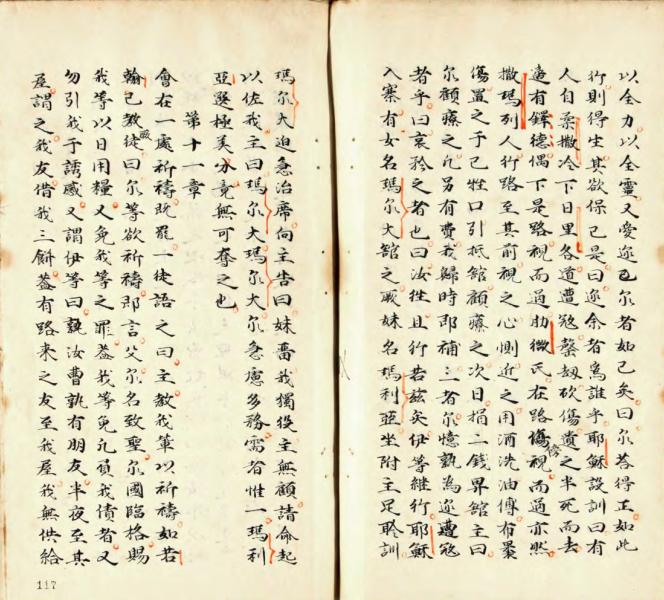 以全力以全靈又愛迩己尔者如己矣曰尔荅得正如此
行則得生其欲保己是曰迩余者為誰乎耶穌設訓曰有
人自柔撒冷下日里各道遭寇罄刼砍傷遺之半死而去
適有鐸德偶下是路視而過肋微氏在路傍視而過亦然
撒瑪列人行路至其前視之心惻近之用酒洗油傅布裹
傷置之于己牲口引抵館顧療之次日捐二錢畀館主曰
尔顧療之凢另有費我歸時即補三者尔憶孰為迩遭寇
者乎曰哀矜之者也曰汝徃且行若兹矣伊等継行耶穌
入寨有女名瑪尔大舘之厥妹名瑪利亞坐附主足聆訓
瑪尔大迫急治席向主告曰妹畱我獨役主無顧請命起
以佐我主曰瑪尔大瑪尔大尔急慮多務需者惟一瑪利
亞選極美分竟無可奪之也
第十一章
會在一處祈禱既罷一徒語之曰主教我軰以祈禱如若
翰已教厥徒曰尔等欲祈禱即言父尔名致聖尔國臨格賜
我等以日用糧又免我等之罪葢我等免凢負我債者又
勿引我于誘感又謂伊等曰孰汝曹孰有朋友半夜至其
屋謂之我友借我三餅葢有路来之友至我屋我無供給
117